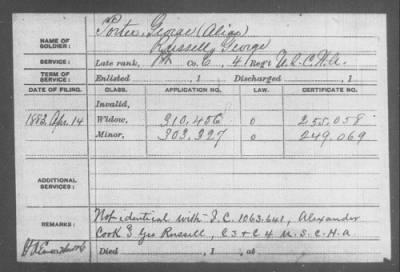 Porter, George (Alias)
NAME OF SOLDIER:
Russell, George
SERVICE: Late rank, Co. C, 4 Reg't U.S.C.H.A.
TERM OF SERVICE: Enlisted , 1 Discharged , 1
DATE OF FILING. CLASS. APPLICATION NO. LAW. CERTIFICATE NO.
Invalid,
1883, Apr. 14 Widow, 310,406 0 255,058
Minor, 303,327 0 249,069
ADDITIONAL SERVICES:
REMARKS: Not identical with I.C. 1063.641, Alexander
Cook Geo Russell, C 3 + C 4 U.S.C.H.A.
Died , 1 , at